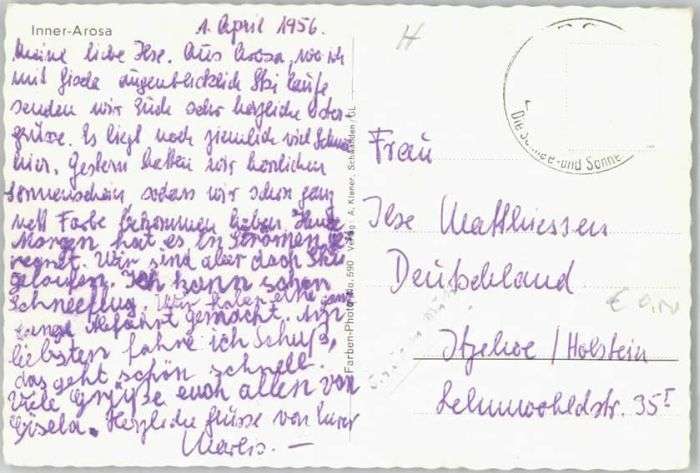 Inner-Arosa
1. April 1956.
Meine liebe Ilse. Aus Arosa, wo ich
mit Gisela augenblicklich Ski laufe
senden wir Euch sehr herzliche Oster-
grüsse. Es liegt noch ziemlich viel Schnee
hier. Gestern hatten wir herrlichen
Sonnenschein sodass wir schon ganz
nett Farbe bekommen haben. Heute
Morgen hat es in Strömen ge
regnet. Wir sind aber doch Ski
gelaufen. Ich kann schon
Schneeflug. Wir haben eine ganz
lange Abfahrt gemacht. Am
liebsten fahre ich Schuß,
das geht schön schnell.
Viele Grüße euch allen von
Gisela. Herzliche Grüsse von Eurer
Marlis. —
Farben-Photo No. 590 Verlag: A. Klaner, Schwanden/GL
H
Die Schnee-und Sonne
Frau
Ilse Matthiessen
Deutschland
Itzehoe / Holstein
Lehmwohldstr. 35 I